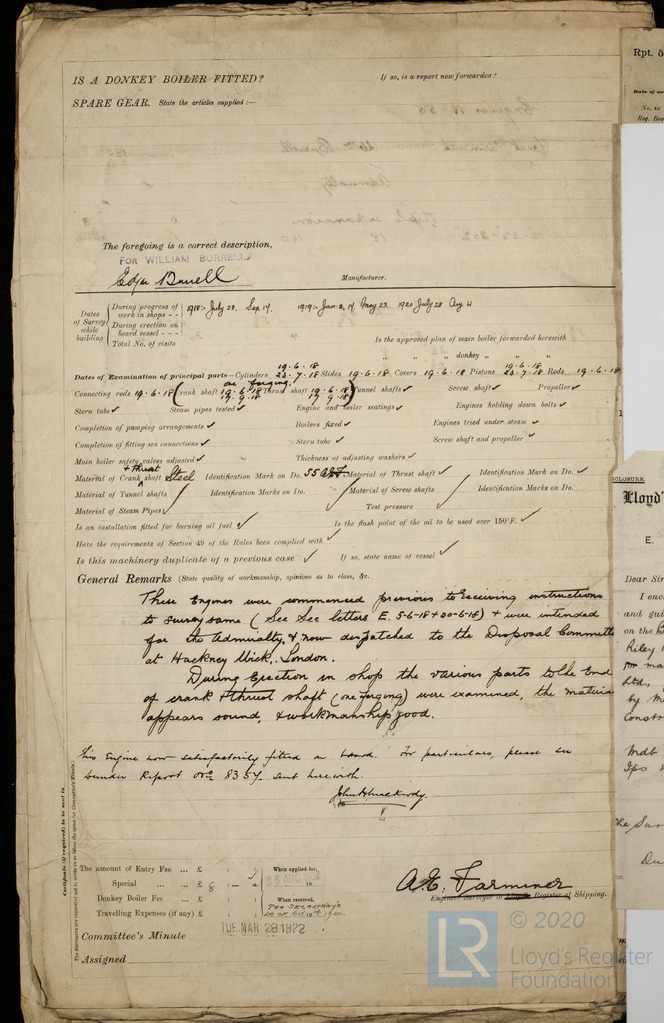 IS A DONKEY BOILER FITTED? If so, is a report now forwarded?
SPARE GEAR. State the articles supplied :—
The foregoing is a correct description,
FOR WILLIAM BURRELL
Edgar Burrell Manufacturer.
Dates of Survey while building
During progress of work in shops - - 1918:- July 23. Sep 17. 1919:- Jan 2, 17, May 23. 1920 July 28 Aug 4
During erection on board vessel - - -
Total No. of visits
Is the approved plan of main boiler forwarded herewith
" " " donkey " " "
Dates of Examination of principal parts—Cylinders 19.6.18 23.7.18 Slides 19.6.18 Covers 19.6.18 Pistons 19.6.18 23.7.18 Rods 19.6.18
Connecting rods 19.6.18 (Crank shaft 19.6.18 17.9.18 one forging. Thrust shaft 19.6.18 17.9.18) Tunnel shafts ✓ Screw shaft ✓ Propeller ✓
Stern tube ✓ Steam pipes tested ✓ Engine and boiler seatings ✓ Engines holding down bolts ✓
Completion of pumping arrangements ✓ Boilers fixed ✓ Engines tried under steam ✓
Completion of fitting sea connections ✓ Stern tube ✓ Screw shaft and propeller ✓
Main boiler safety valves adjusted ✓ Thickness of adjusting washers ✓
Material of Crank + thrust shaft Steel Identification Mark on Do. 55 Material of Thrust shaft ✓ Identification Mark on Do. ✓
Material of Tunnel shafts Identification Marks on Do. Material of Screw shafts Identification Marks on Do.
Material of Steam Pipes ✓ Test pressure
Is an installation fitted for burning oil fuel ✓ Is the flash point of the oil to be used over 150°F. ✓
Have the requirements of Section 49 of the Rules been complied with ✓
Is this machinery duplicate of a previous case ✓ If so, state name of vessel ✓
General Remarks (State quality of workmanship, opinions as to class, &c.
These Engines were commenced previous to receiving instructions
to survey same (See See letters E. 5-6-18 + -6-18) + were intended
for the Admiralty, & now despatched to the Disposal Committe
at Hackney Wick, London.
During Erection in shop the various parts to the End
of crank + thrust shaft (one forging) were examined, the materia
appears sound, & workmanship good.
This Engine now satisfactorily fitted on board. For particulars, please see
Report No. 8357 sent herewith.
Certificate (if required) to be sent to
The Surveyors are requested not to write on or below the space for Committee's Minute.
The amount of Entry Fee ... £ : : When applied for,
Special ... ... £ 8 : — 19
Donkey Boiler Fee ... £ : : When received,
Travelling Expenses (if any) £ : :
A.E. Farminer
Engineer Surveyor to Lloyd's Register of Shipping.
Committee's Minute TUE. MAR 28 1922
Assigned
Rpt. 5
No. in
Reg. Boo
CLOSURE.
Lloyd'
E.
Dear Sir
I enc
and gui
on the
Riley
Ltd.,
by M
Constr
© 2020
LR
Lloyd's Register
Foundation